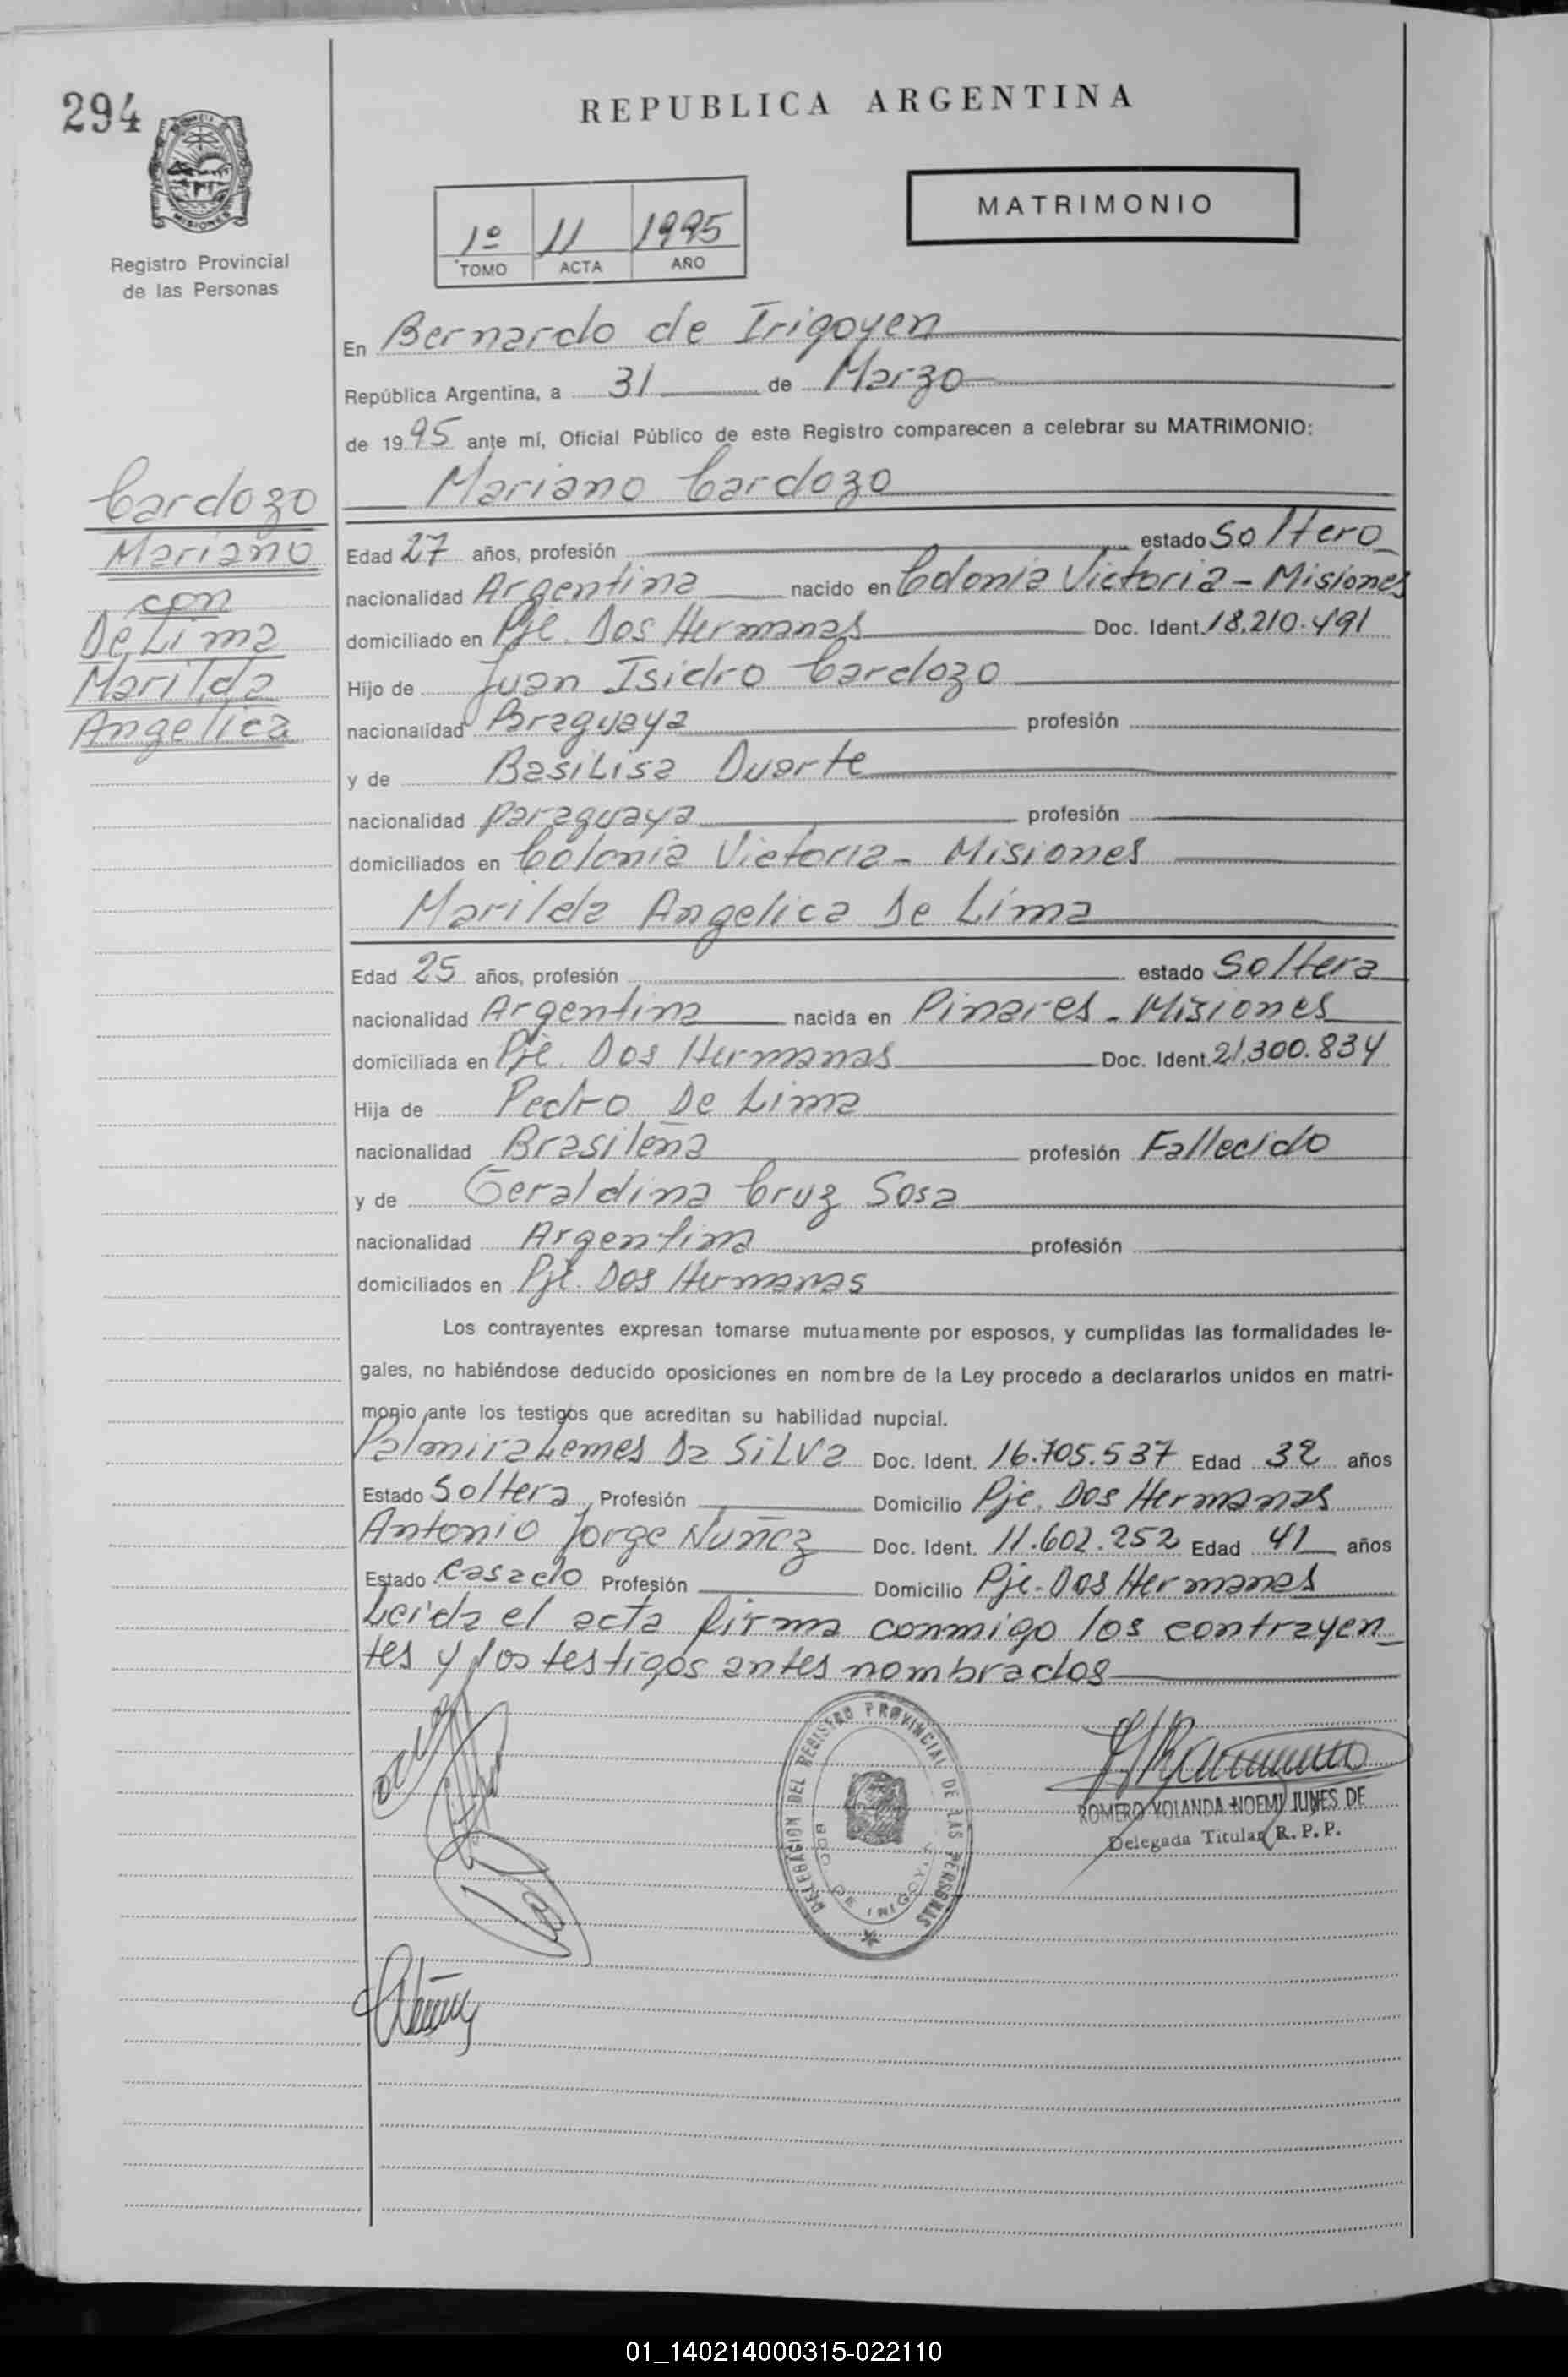 294
REPUBLICA ARGENTINA
MISIONES
Registro Provincial
de las Personas
1º 11 1995
TOMO ACTA AÑO
MATRIMONIO
En Bernardo de Irigoyen
República Argentina, a 31 de Marzo
de 1995 ante mí, Oficial Público de este Registro comparecen a celebrar su MATRIMONIO:
Cardozo
Mariano
con
De Lima
Marilda
Angelica
Mariano Cardozo
Edad 27 años, profesión estado Soltero
nacionalidad Argentina nacido en Colonia Victoria - Misiones
domiciliado en Pje. Dos Hermanas Doc. Ident. 18.210.491
Hijo de Juan Isidro Cardozo
nacionalidad Paraguaya profesión
y de Basilisa Duarte
nacionalidad paraguaya profesión
domiciliados en Colonia Victoria - Misiones
Marilda Angelica De Lima
Edad 25 años, profesión estado Soltera
nacionalidad Argentina nacida en Pinares - Misiones
domiciliada en Pje. Dos Hermanas Doc. Ident. 21.300.834
Hija de Pedro De Lima
nacionalidad Brasileña profesión Fallecido
y de Geraldina Cruz Sosa
nacionalidad Argentina profesión
domiciliados en Pje. Dos Hermanas
Los contrayentes expresan tomarse mutuamente por esposos, y cumplidas las formalidades le-
gales, no habiéndose deducido oposiciones en nombre de la Ley procedo a declararlos unidos en matri-
monio ante los testigos que acreditan su habilidad nupcial.
Palmira Lemes Da Silva Doc. Ident. 16.705.537 Edad 32 años
Estado Soltera Profesión Domicilio Pje. Dos Hermanas
Antonio Jorge Nuñez Doc. Ident. 11.602.252 Edad 41 años
Estado Casado Profesión Domicilio Pje. Dos Hermanas
Leida el acta firma conmigo los contrayen-
tes y los testigos antes nombrados
DELEGACION DEL REGISTRO PROVINCIAL DE LAS PERSONAS
BDO DE IRIGOYEN
ROMERO YOLANDA NOEMI JUNES DE
Delegada Titular R. P. P.
01_140214000315-022110